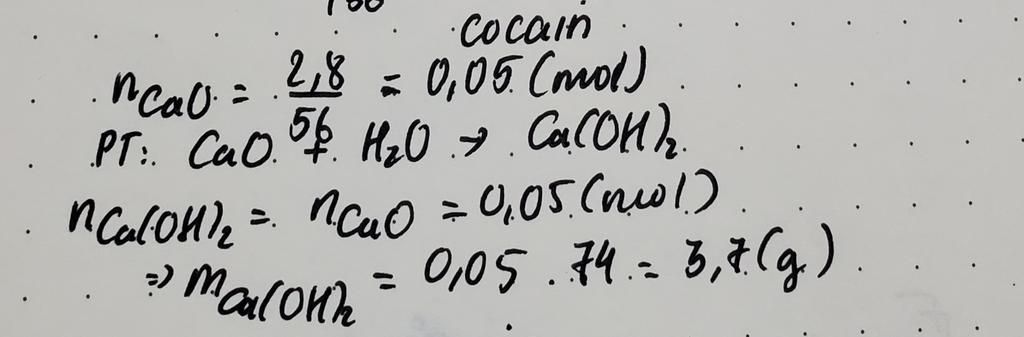 cocain
nCaO = 2,8/56 = 0,05 (mol)
PT: CaO + H₂O → Ca(OH)₂
nCa(OH)₂ = nCaO = 0,05 (mol)
=> mCa(OH)₂ = 0,05 . 74 = 3,7 (g)